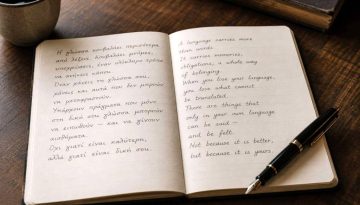 Η γλώσσα κουβαλάει περισσότερα
από λέξεις. Κουβαλάει μνήμες,
υποχρεώσεις, έναν ολόκληρο τρόπο
να ανήκεις κάπου.
Όταν χάνεις τη γλώσσα σου,
χάνεις και αυτά που δεν μπορούν
να μεταφραστούν.
Υπάρχουν πράγματα που μόνο
στη δική σου γλώσσα μπορούν
να ειπωθούν — και να γίνουν
αισθήματα.
Όχι γιατί είναι καλύτερη,
αλλά γιατί είναι δική σου.
A language carries more
than words.
It carries memories,
obligations, a whole way
of belonging.
When you lose your language,
you lose what cannot
be translated.
There are things that
only in your own language
can be said —
and be felt.
Not because it is better,
but because it is yours.